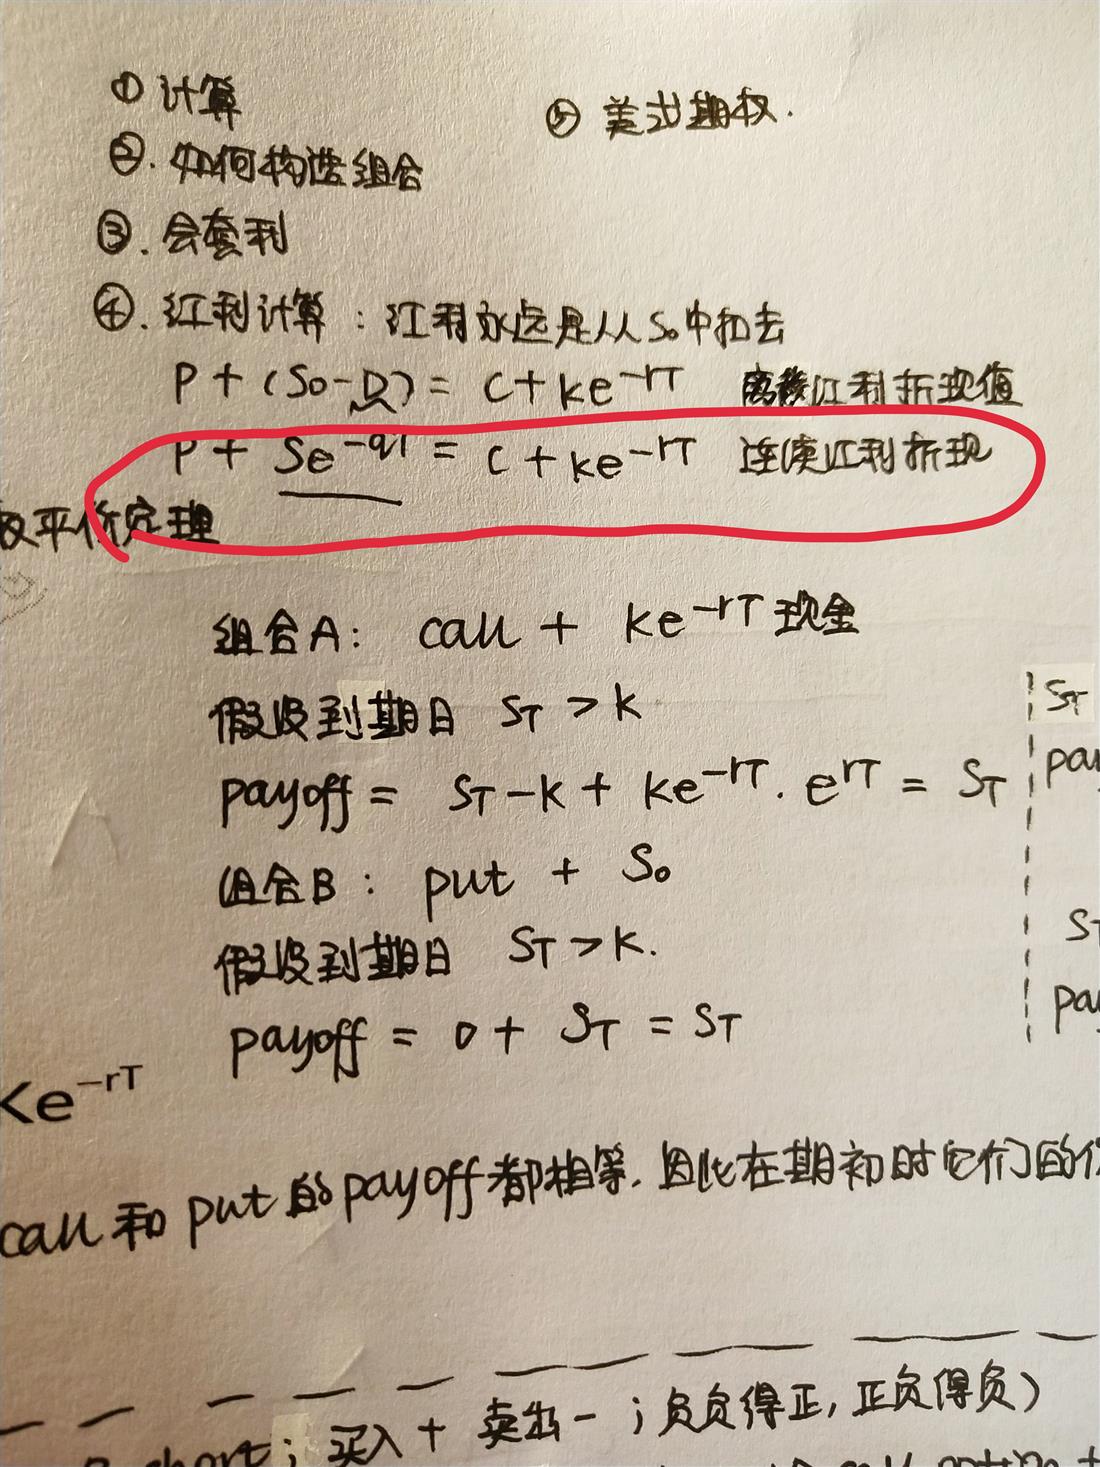 ① 计算
⑤ 美式期权.
②. 如何构造组合
③. 会套利
④. 红利计算 : 红利永远是从S₀中扣去
P + (S₀-D) = C + ke⁻ʳᵀ 离散红利折现值
P + Se^{-qT} = C + ke⁻ʳᵀ 连续红利折现
平价定理
组合A: call + ke⁻ʳᵀ 现金
假设到期日 S_T > k
payoff = S_T - k + ke⁻ʳᵀ · eʳᵀ = S_T
组合B : put + S₀
假设到期日 S_T > k.
payoff = 0 + S_T = S_T
S_T
S
Ke⁻ʳᵀ
call 和 put 的payoff都相等, 因此在期初时它们的
short; 买入 + 卖出 - ; 负负得正, 正负得负)